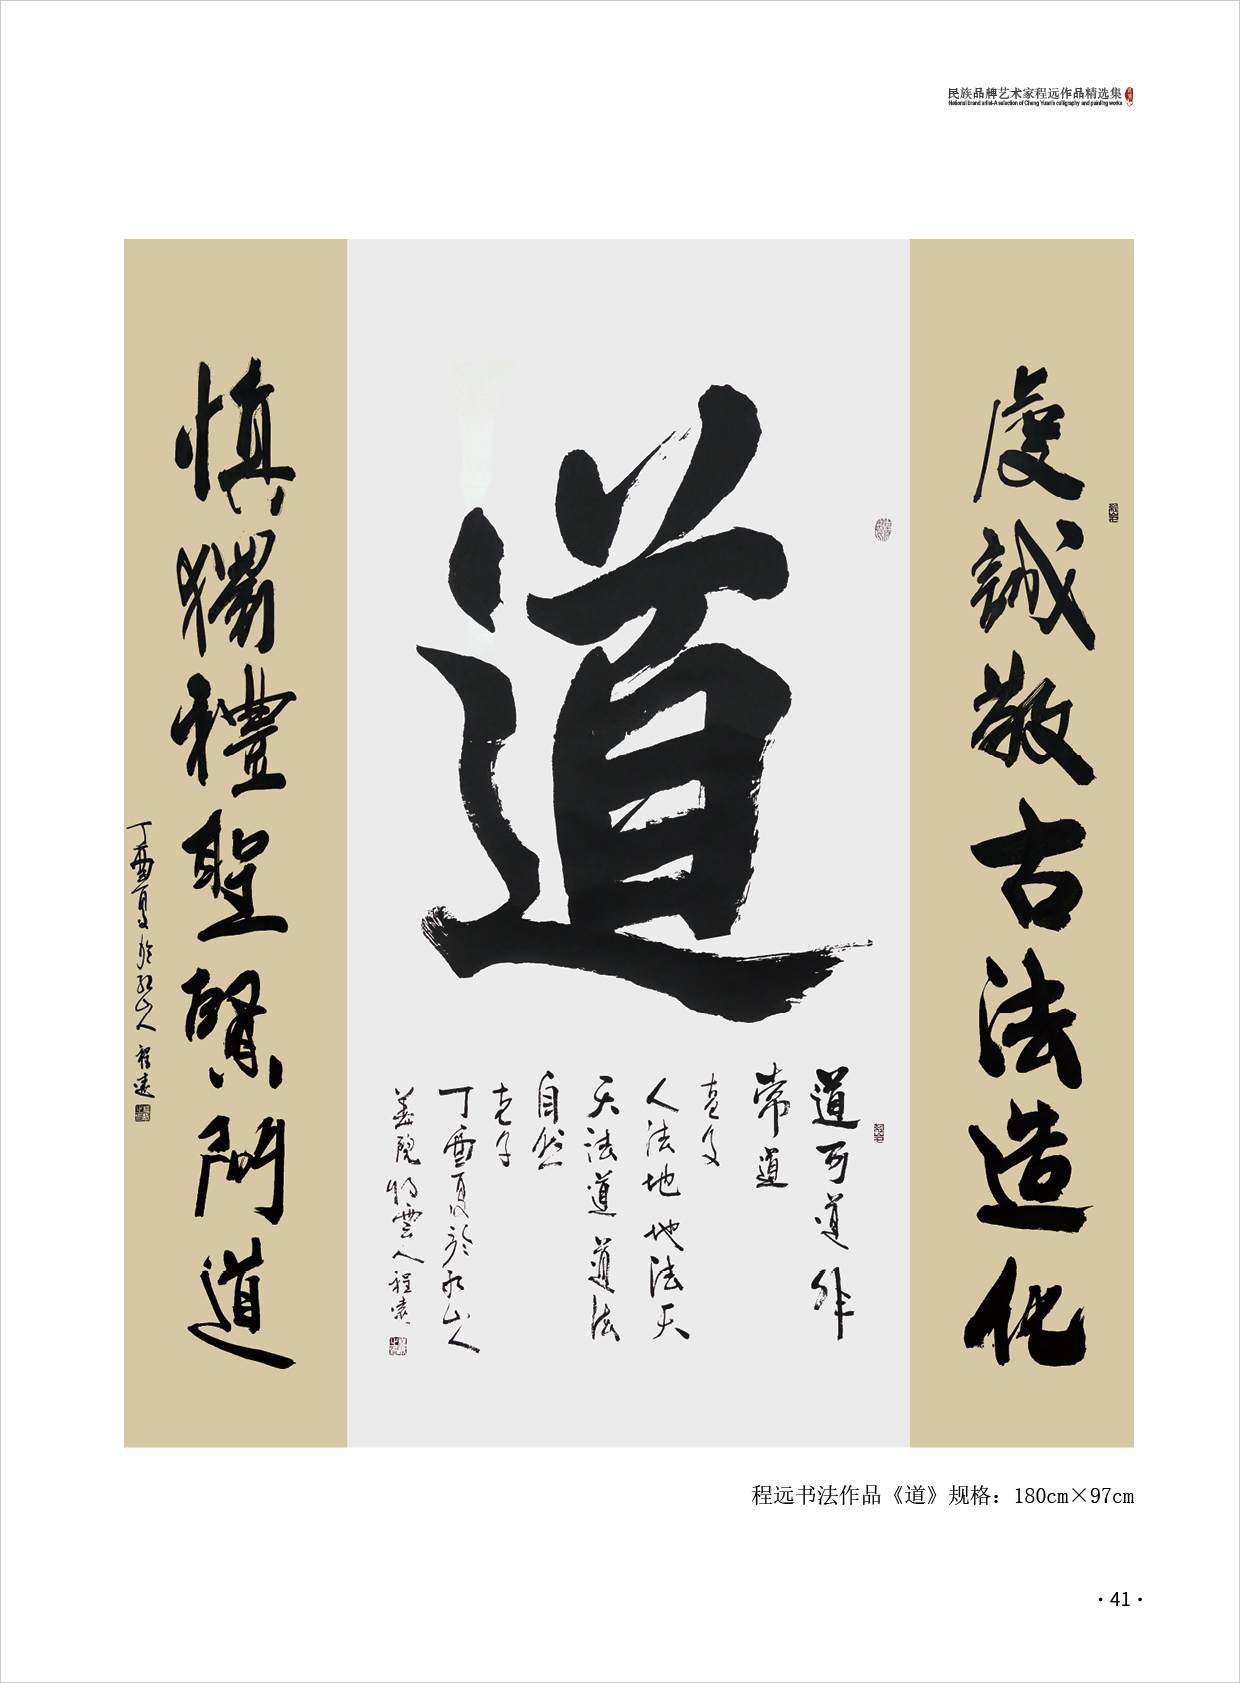 民族品牌艺术家程远作品精选集
National brand artist-A selection of Cheng Yuan's calligraphy and painting works
虔誠敬古法造化
道
道可道非
常道
人法地地法天
天法道道法
自然
老子
丁酉夏於永山人
程遠
慎獨禮聖賢門道
丁酉夏於山人程遠
程远书法作品《道》规格：180cm×97cm
·41·